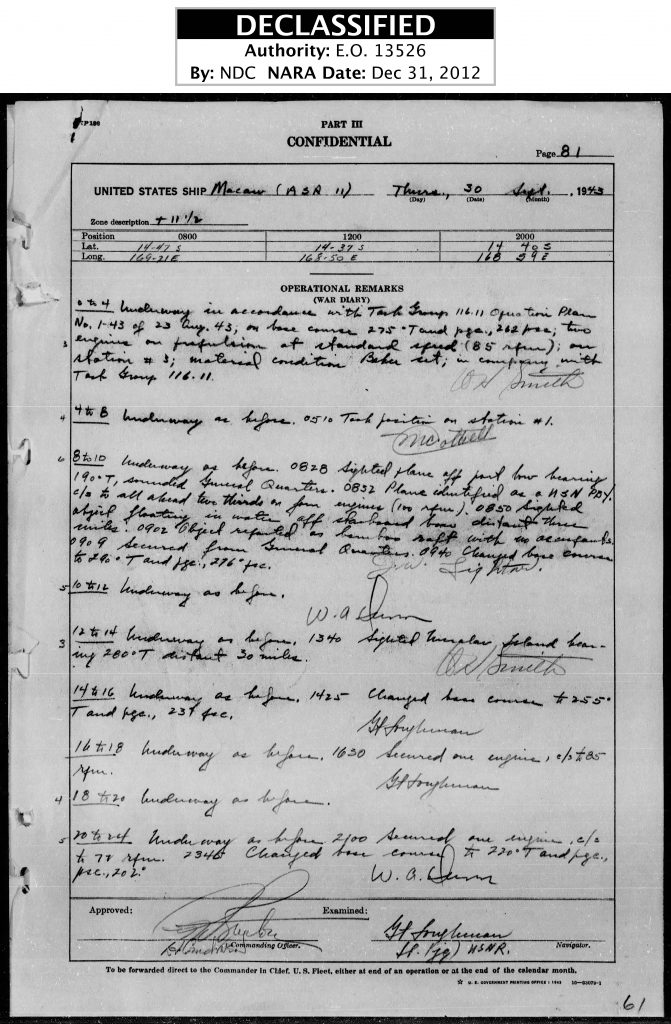 DECLASSIFIED
Authority: E.O. 13526
By: NDC NARA Date: Dec 31, 2012
PART III
CONFIDENTIAL
Page 81
UNITED STATES SHIP Macaw (ASR 11) Thurs., 30 Sept. 1943
(Day) (Date) (Month)
Zone description + 11 1/2
Position 0800 1200 2000
Lat. 14-47 S 14-37 S 14 40 S
Long. 169-21 E 168-50 E 168 29 E
OPERATIONAL REMARKS
(WAR DIARY)
0 to 4 Underway in accordance with Task Group 116.11 Operation Plan
No. 1-43 of 23 Aug. 43, on base course 275°T and pgc., 262 psc; two
engines on propulsion at standard speed (85 rpm); on
3 station #3; material condition Baker set, in company with
Task Group 116.11.
O S Smith
4 4 to 8 Underway as before. 0510 Took position on station #1.
6 8 to 10 Underway as before. 0828 Sighted plane off port bow bearing
190°T, sounded General Quarters. 0832 Plane identified as a USN PBY.
c/s to all ahead two thirds on four engines (100 rpm). 0850 Sighted
object floating in water off starboard bow distant three
miles. 0902 Object reported as bamboo raft with no occupants.
0909 Secured from General Quarters. 0940 Changed base course
to 290°T and pgc., 276° psc.
5 10 to 12 Underway as before.
W. A. Dunn
12 to 14 Underway as before, 1340 Sighted Island bear-
3 ing 280°T distant 30 miles.
O S Smith
14 to 16 Underway as before, 1425 Changed base course to 255°
T and pgc., 239 psc.
G H Loughman
16 to 18 Underway as before, 1630 Secured one engine, c/s to 85
rpm.
G H Loughman
4 18 to 20 Underway as before.
5 20 to 24 Underway as before 2100 Secured one engine, c/s
to 72 rpm. 2345 Changed base course to 220°T and pgc.,
psc., 202°
W. A. Dunn
Approved: Examined:
G H Loughman
Commanding Officer. Lt. (jg) USNR. Navigator.
To be forwarded direct to the Commander in Chief, U. S. Fleet, either at end of an operation or at the end of the calendar month.
☆ U. S. GOVERNMENT PRINTING OFFICE : 1943
61